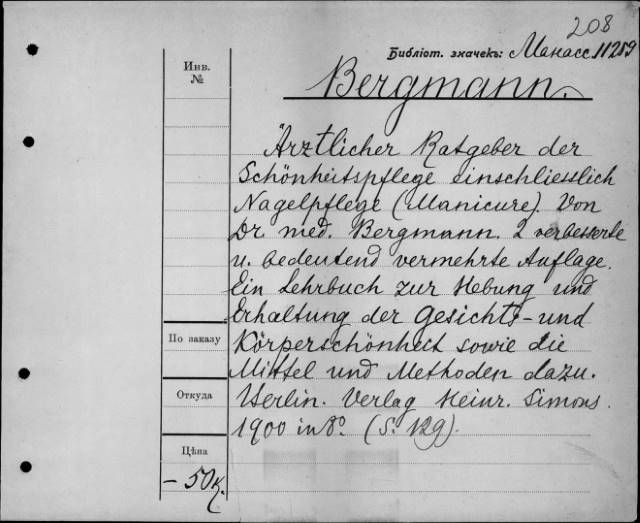 208
Библіот. значекъ: Манасс 11259
Инв.
№
Bergmann.
Ärztlicher Ratgeber der
Schönheitspflege einschliesslich
Nagelpflege (Manicure). Von
Dr. med. Bergmann. 2 verbesserte
u. bedeutend vermehrte Auflage.
Ein Lehrbuch zur Hebung und
Erhaltung der Gesichts- und
Körperschönheit sowie die
Mittel und Methoden dazu.
Berlin. Verlag Heinr. Simons.
1900 in 8°. (S. 129).
По заказу
Откуда
Цѣна
- 50 к.